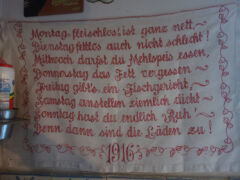 Montag, fleischlos, ist ganz nett,
Dienstag fettlos auch nicht schlecht!
Mittwoch darfst du Mehlspeis essen,
Donnerstag das Fett vergessen
Freitag gibt's ein Fischgericht,
Samstag anstellen ziemlich dicht
Sonntag hast du endlich Ruh'
Denn dann sind die Läden zu!
1916